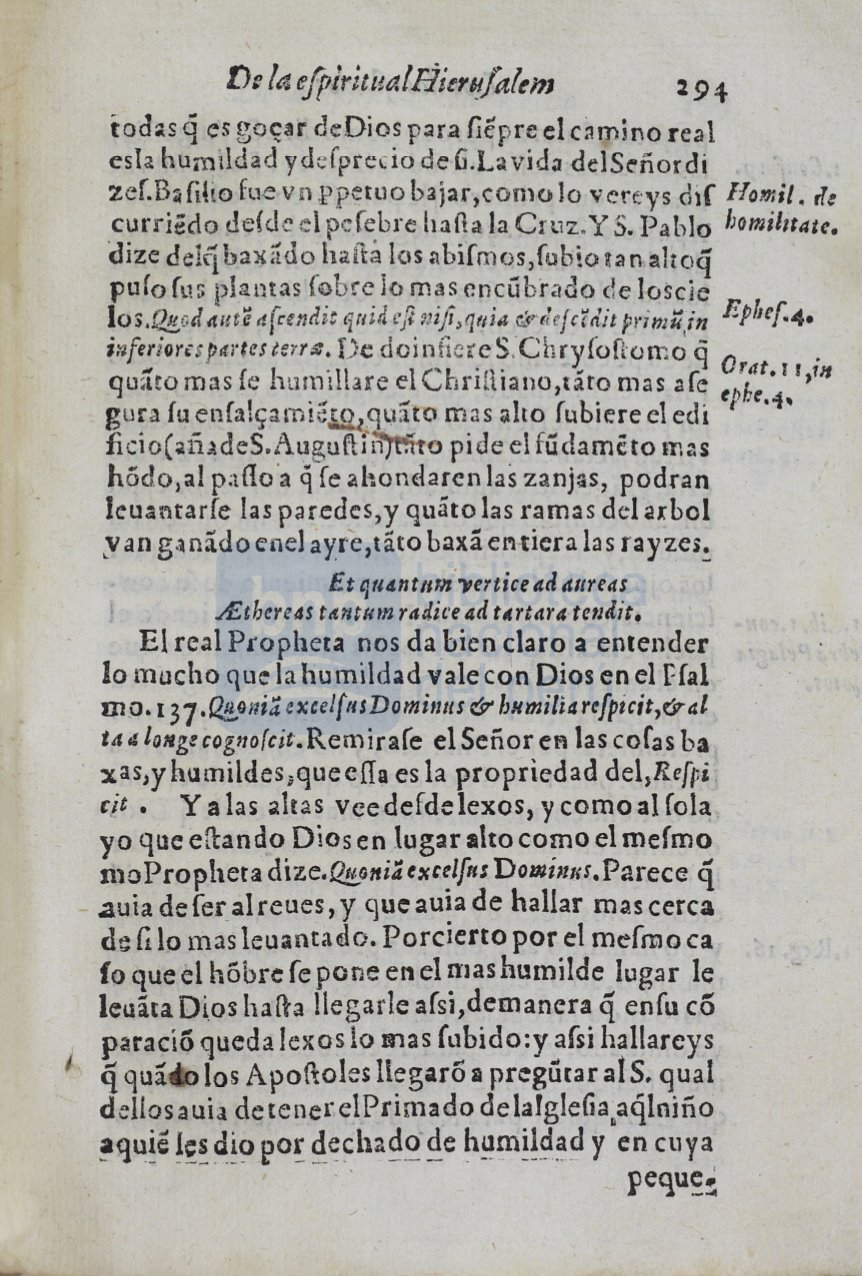 De la eſpiritual Hieruſalem 294
todas q̃ es goçar de Dios para ſiẽpre el camino real
es la humildad y deſprecio de ſi. La vida del Señor di
zeſ. Baſilio fue vn ppetuo bajar, como lo vereys diſ
Homil. de
curriẽdo deſde el peſebre haſta la Cruz. Y S. Pablo
homilitate.
dize del q̃ baxãdo haſta los abiſmos, ſubio tan alto q̃
puſo ſus plantas ſobre lo mas encũbrado de los cie
los. Quod autẽ aſcendit quid eſt niſi, quia & deſcẽdit primũ, in
Epheſ. 4.
inferiores partes terræ. De do infiere S. Chryſoſtomo q̃
quãto mas ſe humillare el Chriſtiano, tãto mas aſe
Orat. 11, in
ephe. 4.
gura ſu enſalçamiẽto, quãto mas alto ſubiere el edi
ficio (añade S. Auguſtin) tãto pide el fũdamẽto mas
hõdo, al paſſo a q̃ ſe ahondaren las zanjas, podran
leuantarſe las paredes, y quãto las ramas del arbol
van ganãdo en el ayre, tãto baxã en tiera las rayzes.
Et quantum vertice ad aureas
Æthereas tantum radice ad tartara tendit.
El real Propheta nos da bien claro a entender
lo mucho que la humildad vale con Dios en el Pſal
mo. 137. Quoniã excelſus Dominus & humilia reſpicit, & al
ta a longe cognoſcit. Remiraſe el Señor en las coſas ba
xas, y humildes, que eſſa es la propriedad del, Reſpi
cit . Y a las altas vee deſde lexos, y como al ſola
yo que eſtando Dios en lugar alto como el meſmo
mo Propheta dize. Quoniã excelſus Dominus. Parece q̃
auia de ſer al reues, y que auia de hallar mas cerca
de ſi lo mas leuantado. Por cierto por el meſmo ca
ſo que el hõbre ſe pone en el mas humilde lugar le
leuãta Dios haſta llegarle aſsi, de manera q̃ en ſu cõ
paraciõ queda lexos lo mas ſubido: y aſsi hallareys
q̃ quãdo los Apoſtoles llegarõ a pregũtar al S. qual
dellos auia de tener el Primado de la Igleſia, aq̃l niño
a quiẽ les dio por dechado de humildad y en cuya
peque-